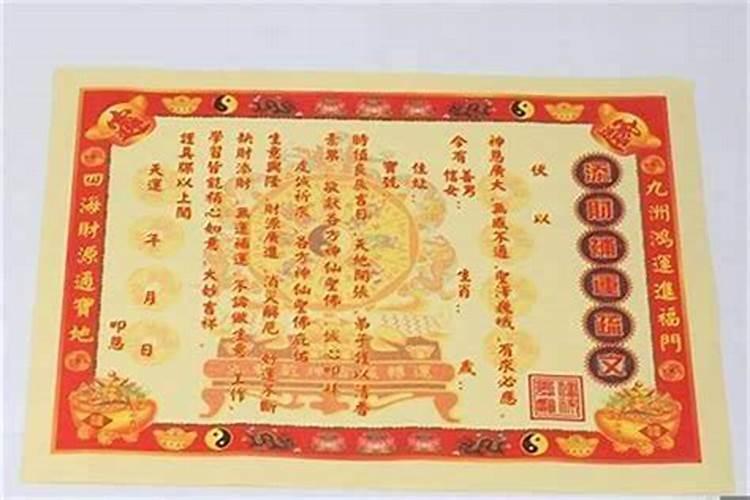 九洲鴻運進福門
添財補運疏文
伏以
神恩廣大 無感不通 聖澤巍峨 有求必應
今有善男信女： 生肖： 歲：
住址：
寶號：
時值良辰吉日 天地開張 弟子謹以清香
素果 敬獻各方神仙聖佛 誠心叩拜
虔誠祈求 各方神仙聖佛庇佑
生意興隆 財源廣進 消災解厄 好運不斷
缺財添財 無運補運 不論做生意、工作、
學習皆能稱心如意 大妙吉祥
謹具疏以上聞
天運 年 月 日
叩恩
四海財源通寶地